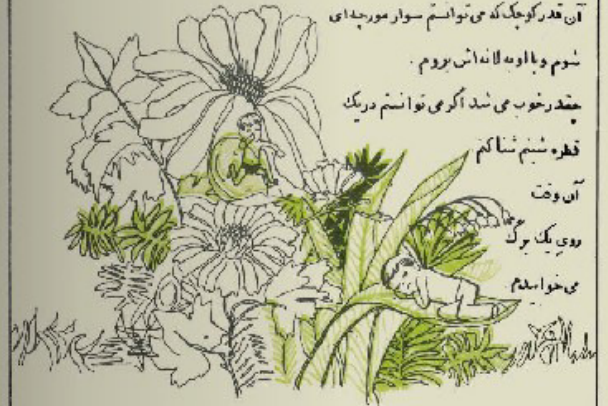 آن قدر کوچک که می توانستم سوار مورچه ای
شوم و با او به لانه اش بروم .
چقدر خوب می شد اگر می توانستم در یک
قطره شبنم شنا کنم
آن وقت
روی یک برگ
می خوابیدم